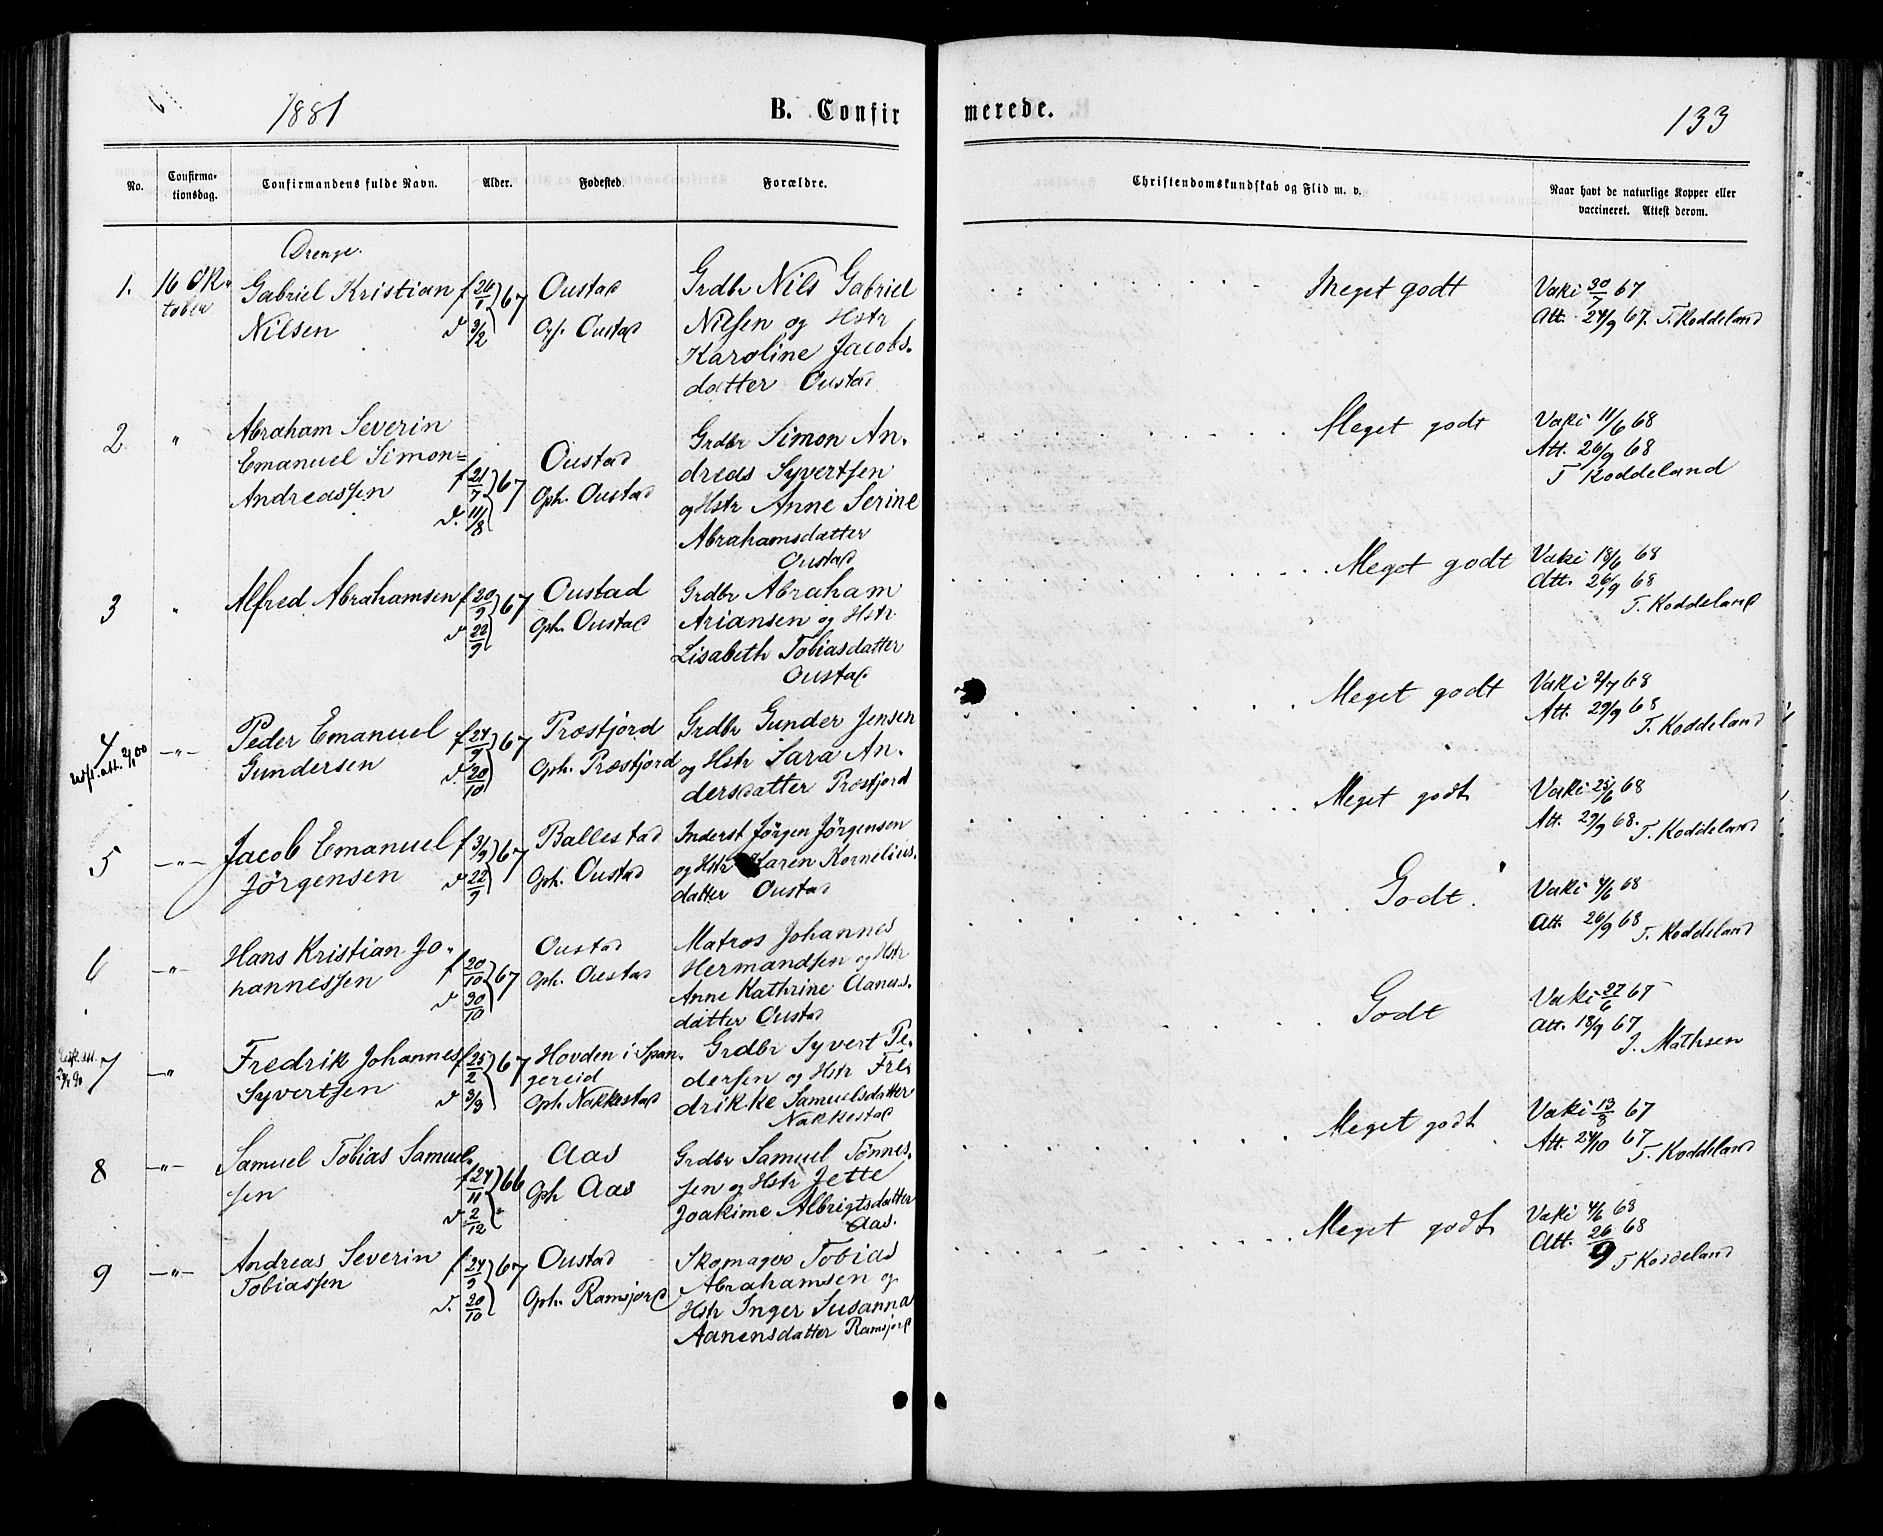 1881
B. Confir
merede.
133
No.
Confirma-
tionsdag.
Confirmandens fulde Navn.
Alder.
Fødested.
Forældre.
Christendomskundskab og Flid m. v.
Naar havt de naturlige Kopper eller
vaccineret. Attest derom.
Drenge.
1. 16 Ok-
tober
Gabriel Kristian
Nilsen
f 26/1 67
d. 3/2
Oustad
Oph. Oustad
Grdbr Nils Gabriel
Nilsen og Hstr
Karoline Jacobs-
datter Oustad
Meget godt
Vaki 30/7 67
Att. 24/9 67. T. Koddeland
2. "
Abraham Severin
Emanuel Simon=
Andreassen
f 21/7 67
d. 11/8
Oustad
Oph. Oustad
Grdbr Simon An-
dreas Syvertsen
og Hstr Anne Serine
Abrahamsdatter
Oustad
Meget godt
Vaki 11/6 68
Att. 26/9 68
T Koddeland
3 "
Alfred Abrahamsen
f 20/9 67
d 22/9
Oustad
Oph. Oustad
Grdbr Abraham
Ariansen og Hstr
Lisabeth Tobiasdatter
Oustad
Meget godt
Vaki 18/6 68
Att. 26/9 68
T. Koddeland
4 -"-
Peder Emanuel
Gundersen
f 24/9 67
d. 20/10
Præstfjord
Oph. Præstfjord
Grdbr Gunder Jensen
og Hstr Sara An-
dersdatter Præstfjord
Meget godt
Vaki 2/7 68
Att. 29/9 68
T. Koddeland
5 -"-
Jacob Emanuel
Jörgensen
f 3/9 67
d 22/9
Ballestad
Oph. Oustad
Inderst Jørgen Jørgensen
og Hstr Karen Kornelius-
datter Oustad
Meget godt
Vaki 25/6 68
Att. 29/9 68. T. Koddeland
6 -"-
Hans Kristian Jo-
hannessen
f 20/10 67
d 30/10
Oustad
Oph. Oustad
Matros Johannes
Hermandsen og Hstr
Anne Kathrine Aanens-
datter Oustad
Godt
Vaki 4/6 68
Att. 26/9 68 T. Koddeland
7 -"-
Fredrik Johannes
Syvertsen
f 25/2 67
d 3/3
Hovden i Span-
gereid
Oph. Nakkestad
Grdbr Syvert Pe-
dersen og Hstr Fre-
drikke Samuelsdatter
Nakkestad
Godt
Vaki 27/6 67
Att. 18/9 67
J. Mathsen
8 -"-
Samuel Tobias Samuel-
sen
f 24/11 66
d 2/12
Aas
Oph Aas
Grdbr Samuel Tönnes-
sen og Hstr Jette
Joakime Albrigtsdatter
Aas.
Meget godt
Vaki 13/8 67
Att. 24/10 67
T. Koddeland
9 -"-
Andreas Severin
Tobiassen
f 24/9 67
d. 20/10
Oustad
Oph. Ramsjord
Skomager Tobias
Abrahamsen og
Hstr Inger Susanna
Aanensdatter Ramsjord
Meget godt
Vaki 4/6 68
Att. 26/9 68
T Koddeland